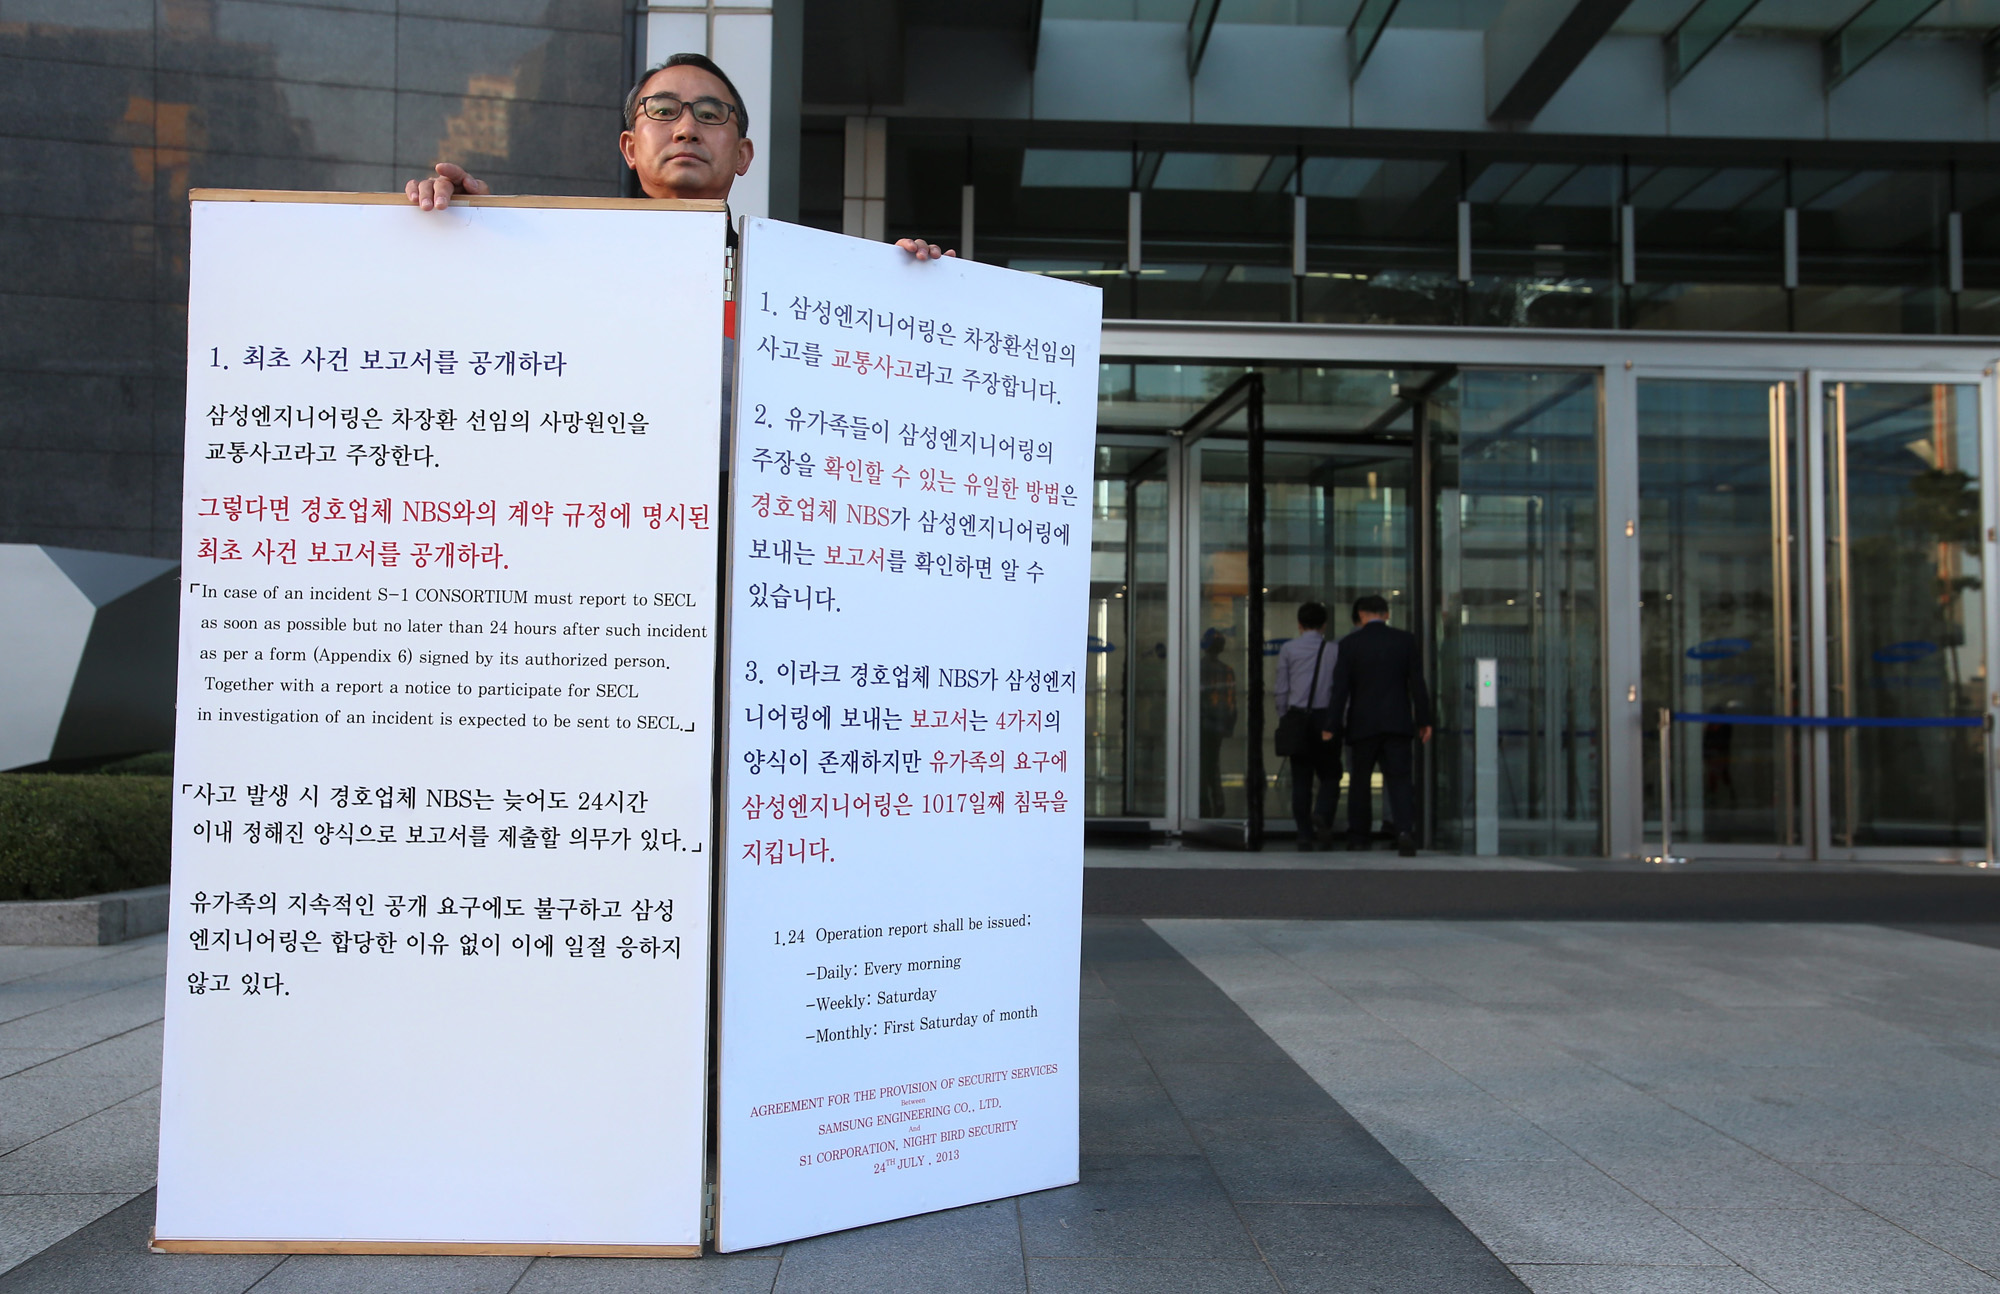 1. 최초 사건 보고서를 공개하라
삼성엔지니어링은 차장환 선임의 사망원인을
교통사고라고 주장한다.
그렇다면 경호업체 NBS와의 계약 규정에 명시된
최초 사건 보고서를 공개하라.
「In case of an incident S-1 CONSORTIUM must report to SECL
as soon as possible but no later than 24 hours after such incident
as per a form (Appendix 6) signed by its authorized person.
Together with a report a notice to participate for SECL
in investigation of an incident is expected to be sent to SECL.」
「사고 발생 시 경호업체 NBS는 늦어도 24시간
이내 정해진 양식으로 보고서를 제출할 의무가 있다.」
유가족의 지속적인 공개 요구에도 불구하고 삼성
엔지니어링은 합당한 이유 없이 이에 일절 응하지
않고 있다.
1. 삼성엔지니어링은 차장환선임의
사고를 교통사고라고 주장합니다.
2. 유가족들이 삼성엔지니어링의
주장을 확인할 수 있는 유일한 방법은
경호업체 NBS가 삼성엔지니어링에
보내는 보고서를 확인하면 알 수
있습니다.
3. 이라크 경호업체 NBS가 삼성엔지
니어링에 보내는 보고서는 4가지의
양식이 존재하지만 유가족의 요구에
삼성엔지니어링은 1017일째 침묵을
지킵니다.
1.24 Operation report shall be issued;
-Daily: Every morning
-Weekly: Saturday
-Monthly: First Saturday of month
AGREEMENT FOR THE PROVISION OF SECURITY SERVICES
Between
SAMSUNG ENGINEERING CO., LTD.
And
S1 CORPORATION. NIGHT BIRD SECURITY
24TH JULY . 2013